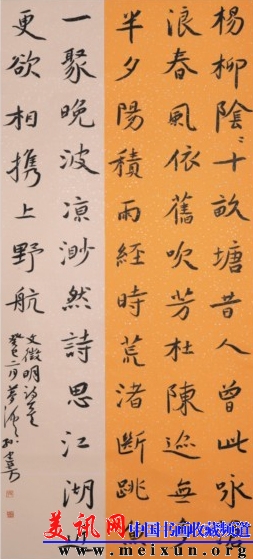 楊柳陰〻十畝塘昔人曾此咏滄
浪春風依舊吹芳杜陳迹無多
半夕陽積雨經時荒渚斷跳
一聚晚波凉渺然詩思江湖
更欲相携上野航
文徵明詩
癸巳二月
美讯网 中国书画收藏频道
www.meixun.org